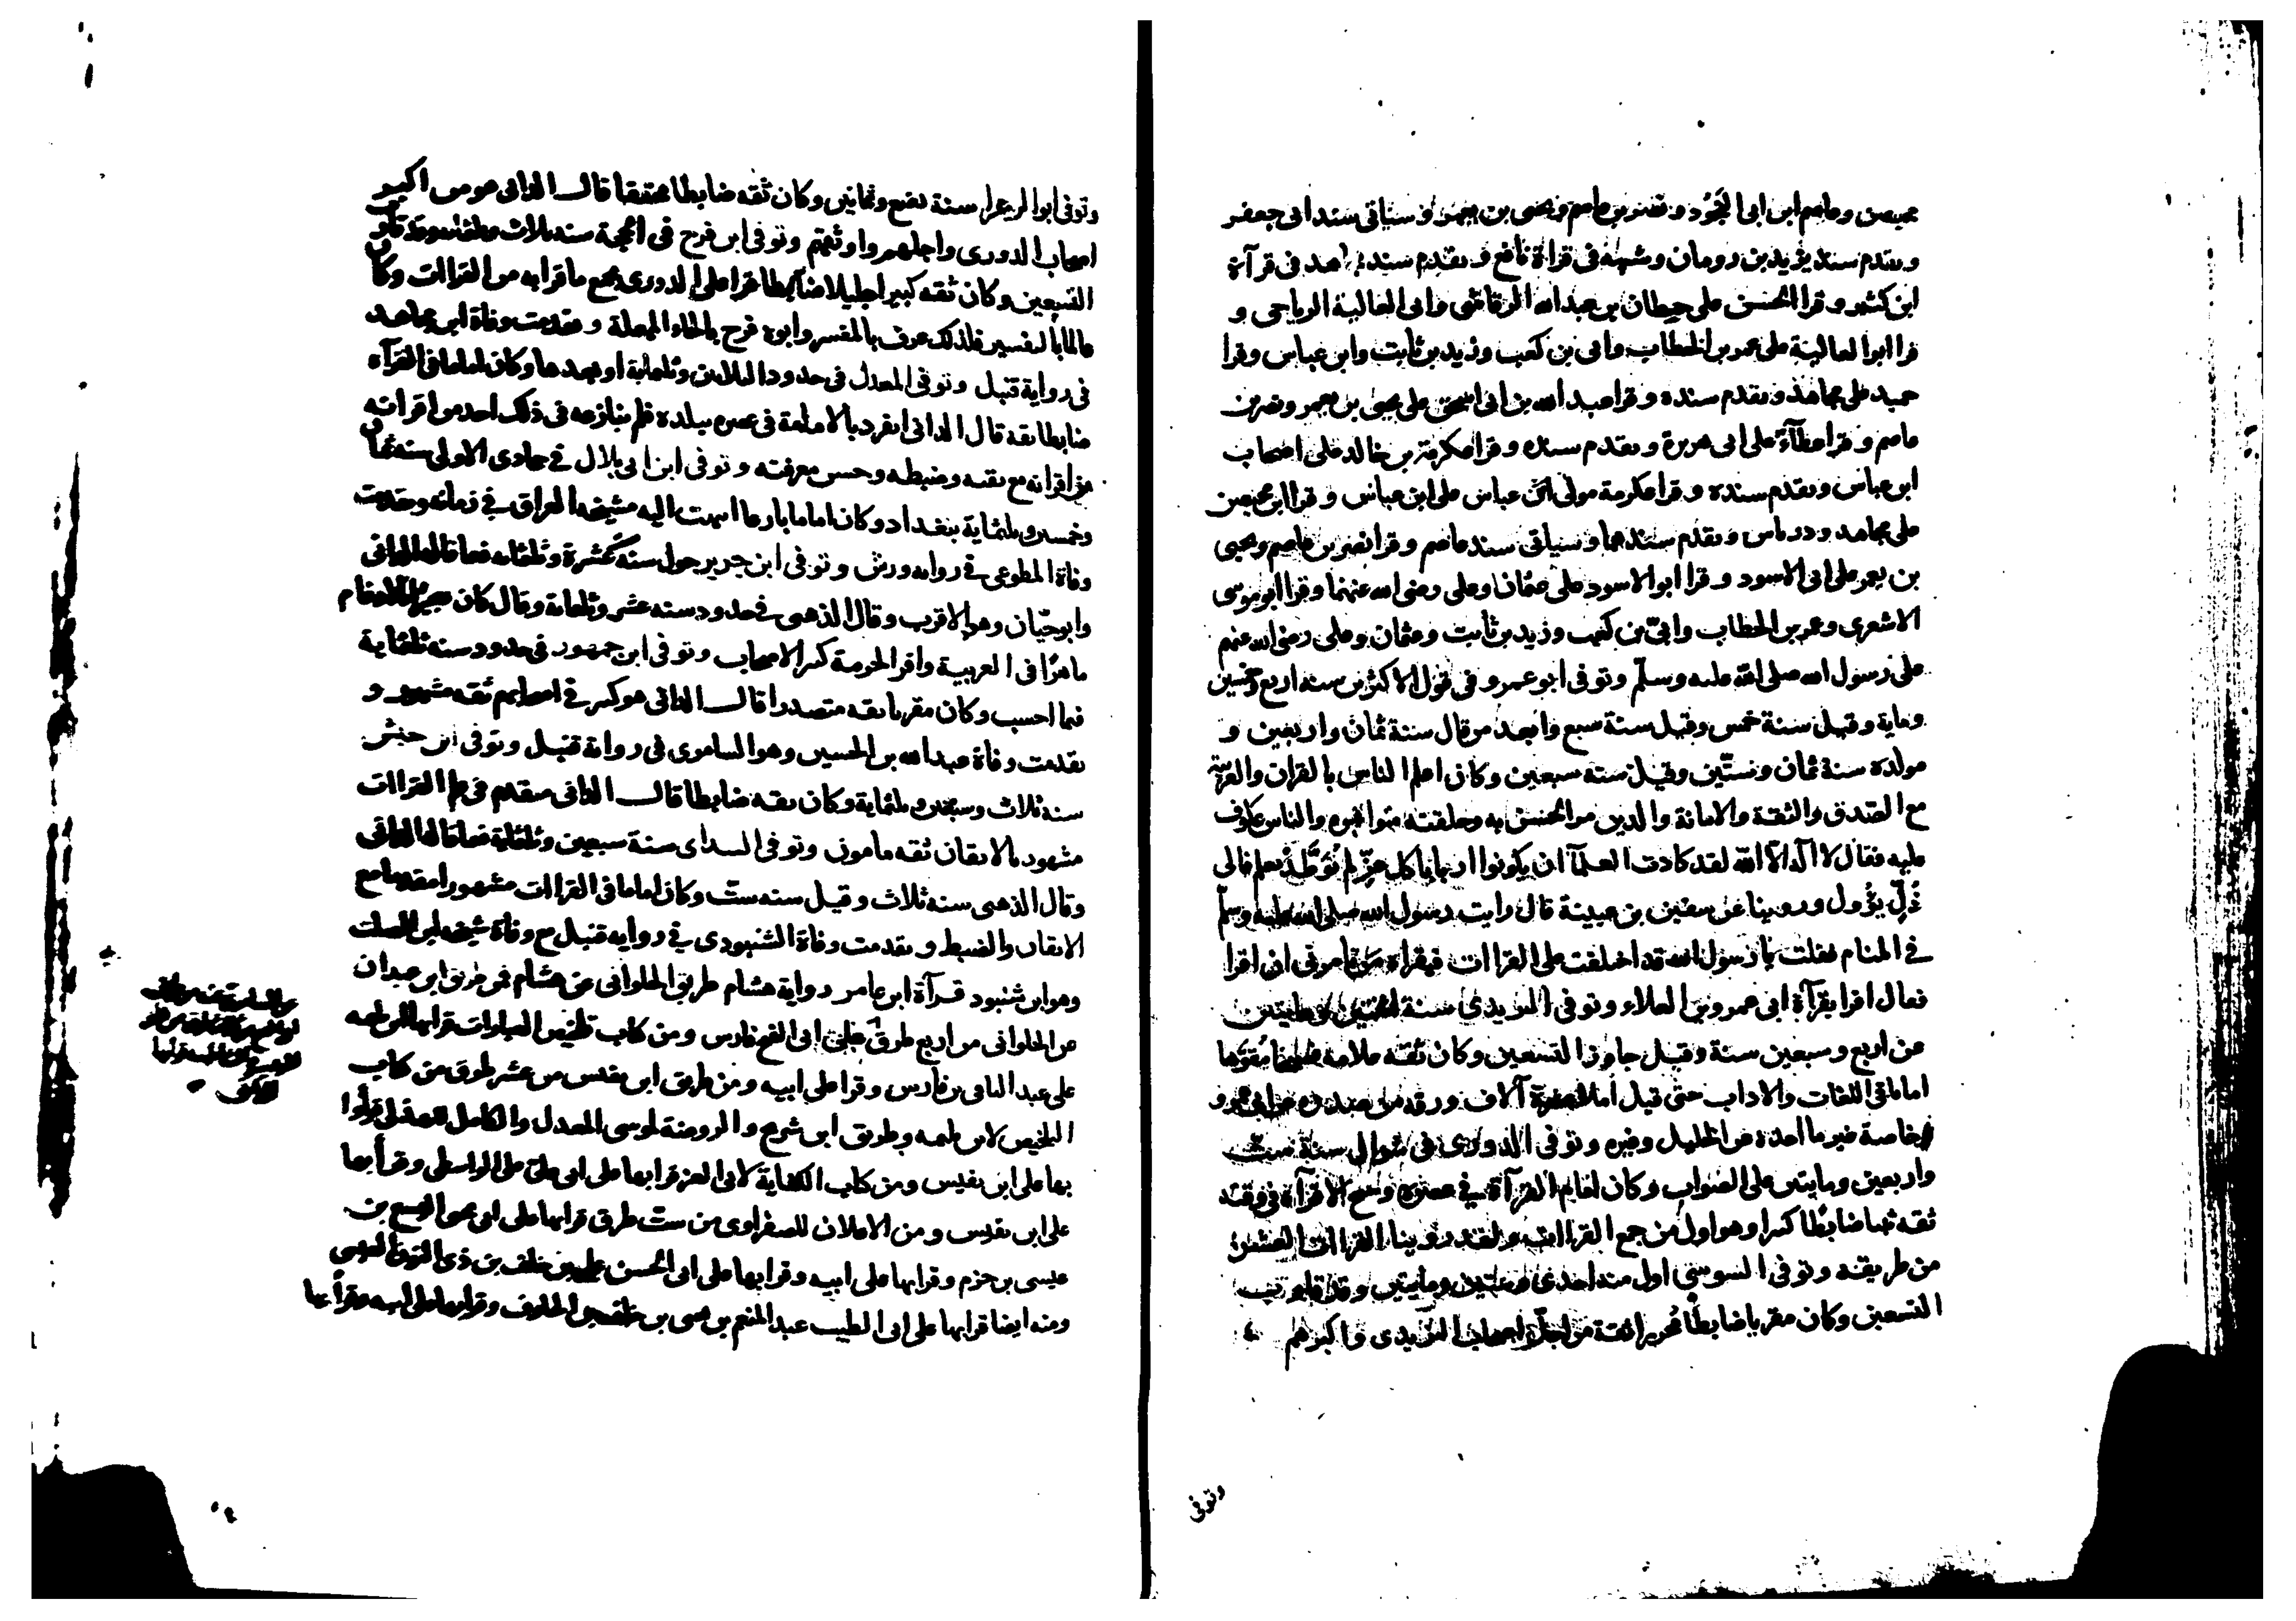 محيصن وعاصم ابن ابى النجود ونصر بن عاصم ويحيى بن يعمر وسياتى سند ابى جعفر
وتقدم سند يزيد بن رومان وشيبة فى قراة نافع وتقدم سند مجاهد فى قرآة
ابن كثير وقرا الحسن على حطان بن عبد الله الرقاشى وابى العالية الرياحى و
قرا ابو العالية على عمر بن الخطاب وابى بن كعب وزيد بن ثابت وابن عباس وقرا
حميد على مجاهد وتقدم سنده وقرا عبد الله بن ابى اسحق على يحيى بن يعمر ونصر بن
عاصم وقرا عطآء على ابى هريرة وتقدم سنده وقرا عكرمة بن خالد على اصحاب
ابن عباس وتقدم سنده وقرا عكرمة مولى ابن عباس على ابن عباس وقرا ابن محيصن
على مجاهد ودرباس وتقدم سندهما وسياتى سند عاصم وقرا نصر بن عاصم ويحيى
بن يعمر على ابى الاسود وقرا ابو الاسود على عثمان وعلى رضى الله عنهما وقرا ابو موسى
الاشعرى وعمر بن الخطاب وابىّ بن كعب وزيد بن ثابت وعثمان وعلى رضى الله عنهم
على رسول الله صلى الله عليه وسلم وتوفى ابو عمرو فى قول الاكثرين سنة اربع وخمسين
وماية وقيل سنة خمس وقيل سنة سبع وابعد من قال سنة ثمان واربعين و
مولده سنة ثمان وستّين وقيل سنة سبعين وكان اعلم الناس بالقران والعربية
مع الصدق والثقة والامانة والدين مر الحسن به وحلقته متوافرة والناس عكوف
عليه فقال لا اله الا الله لقد كادت العلمآ ان يكونوا اربابا كل عزّ لم يُوَطَّد بعلم فالى
ذُلّ يؤُول وروينا عن سفين بن عيينة قال رايت رسول الله صلى الله عليه وسلم
فى المنام فقلت يا رسول الله قد اختلفت على القراات فبقراة من تامرنى ان اقرا
فقال اقرا بقرآة ابى عمرو بن العلاء وتوفى اليزيدى سنة اثنتين ومايتين
عن اربع وسبعين سنة وقيل جاوز التسعين وكان ثقة علامة فصيحا مُفَوّها
اماما فى اللغات والاداب حتى قيل املا عشرة آلاف ورقة من صدره عن ابى عمرو
خاصة غير ما اخذه عن الخليل وغيره وتوفى الدورى فى شوال سنة ست
واربعين ومايتين على الصواب وكان امام القرآة فى عصره وشيخ الاقرآء فى وقته
ثقة ثبتا ضابطا كبيرا وهو اول من جمع القراات ولقد روينا القراات العشر
من طريقه وتوفى السوسى اول سنة احدى وستين ومايتين وقد قارب
التسعين وكان مقريا ضابطا محررا ثقة من اجلّ اصحاب اليزيدى واكبرهم
وتوفى
وتوفى ابو الزعرا سنة بضع وثمانين وكان ثقة ضابطا محققا قال الدانى هو من اكبر
اصحاب الدورى واجلهم واوثقهم وتوفى ابن فرح فى الحجة سنة ثلاث وثلثماية وقد قارب
التسعين وكان ثقة كبيرا جليلا ضابطا قرا على الدورى بجميع ما قرا به من القراات وكان
عالما بالتفسير فلذلك عرف بالمفسر وابوه فرح بالحاء المهملة وتقدمت وفاة ابن مجاهد
فى رواية قنبل وتوفى المعدل فى حدود الثلاثين وثلثماية او بعدها وكان اماما فى القرآة
ضابطا ثقة قال الدانى انفرد بالامامة فى عصره ببلده فلم ينازعه فى ذلك احد من اقرانه
مع ثقته وضبطه وحسن معرفته وتوفى ابن ابى بلال فى جمادى الاولى سنة ثمان
وخمسين وثلثماية ببغداد وكان اماما بارعا انتهت اليه مشيخة العراق فى زمانه وتقدمت
وفاة المطوعى فى رواية ورش وتوفى ابن جرير حول سنة عشرة وثلثماية فيما قاله الدانى
وابو حيّان وهو الاقرب وقال الذهبى فى حدود سنة عشر وثلثماية وقال كان بصيرا بالادغام
ماهرًا فى العربية وافر الحرمة كثير الاصحاب وتوفى ابن جمهور فى حدود سنة ثلثماية
فيما احسب وكان مقريا ثقة متصدرا قال الدانى هو كبير فى اصحابهم ثقة مشهور و
تقدمت وفاة عبد الله بن الحسين وهو السامرى فى رواية قنبل وتوفى ابن حبش
سنة ثلاث وسبعين وثلثماية وكان ثقة ضابطا قال الدانى متقدم فى علم القراات
مشهور بالاتقان ثقة مامون وتوفى الشذاى سنة سبعين وثلثماية فيما قاله الدانى
وقال الذهبى سنة ثلاث وقيل سنة ستّ وكان اماما فى القراات مشهورا مقدما مع
الاتقان والضبط وتقدمت وفاة الشنبوذى فى رواية قنبل مع وفاة شيخه ابن الصلت
وهو ابن شنبوذ قرآة ابن عامر رواية هشام طريق الحلوانى عن هشام فمن طريق ابن عبدان
عن الحلوانى من اربع طرق على ابى الفتح فارس ومن كتاب تلخيص العبارات قرا بها ابن بليمة
على عبد الباقى بن فارس وقرا على ابيه ومن طريق ابن نفيس من عشر طرق من كتاب
التلخيص لابن بليمة وطريق ابن شريح والروضة لموسى المعدل والكامل للهذلى قرأوا
بها على ابن نفيس ومن كتاب الكفاية لابى العز قرا بها على ابى على الواسطى وقرأ بها
على ابن نفيس ومن الاعلان للصفراوى من ستّ طرق قرا بها على ابى يحيى اليسع بن
عيسى بن حزم وقرا بها على ابيه وقرا بها على ابى الحسن على بن خلف بن ذى النون العبسى
ومنه ايضا قرا بها على ابى الطيب عبد المنعم بن يحيى بن خلف بن الخلوف وقرا بها على ابيه وقرأ بها